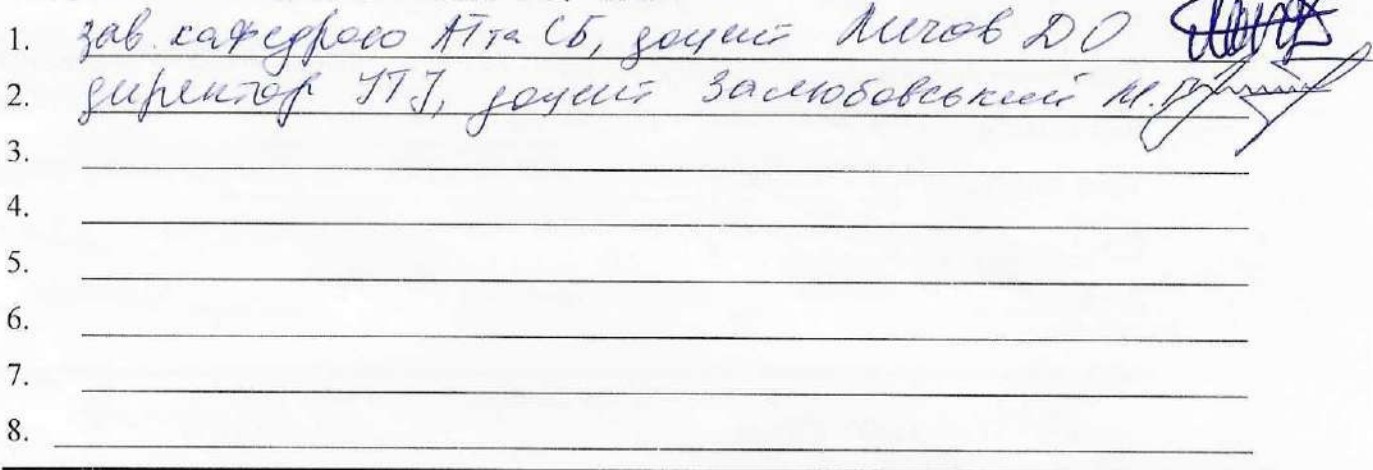 1. зав. кафедрою АТ та СБ, доцент Личов Д О
2. директор ІТІ, доцент Залюбовський М.Г
3.
4.
5.
6.
7.
8.